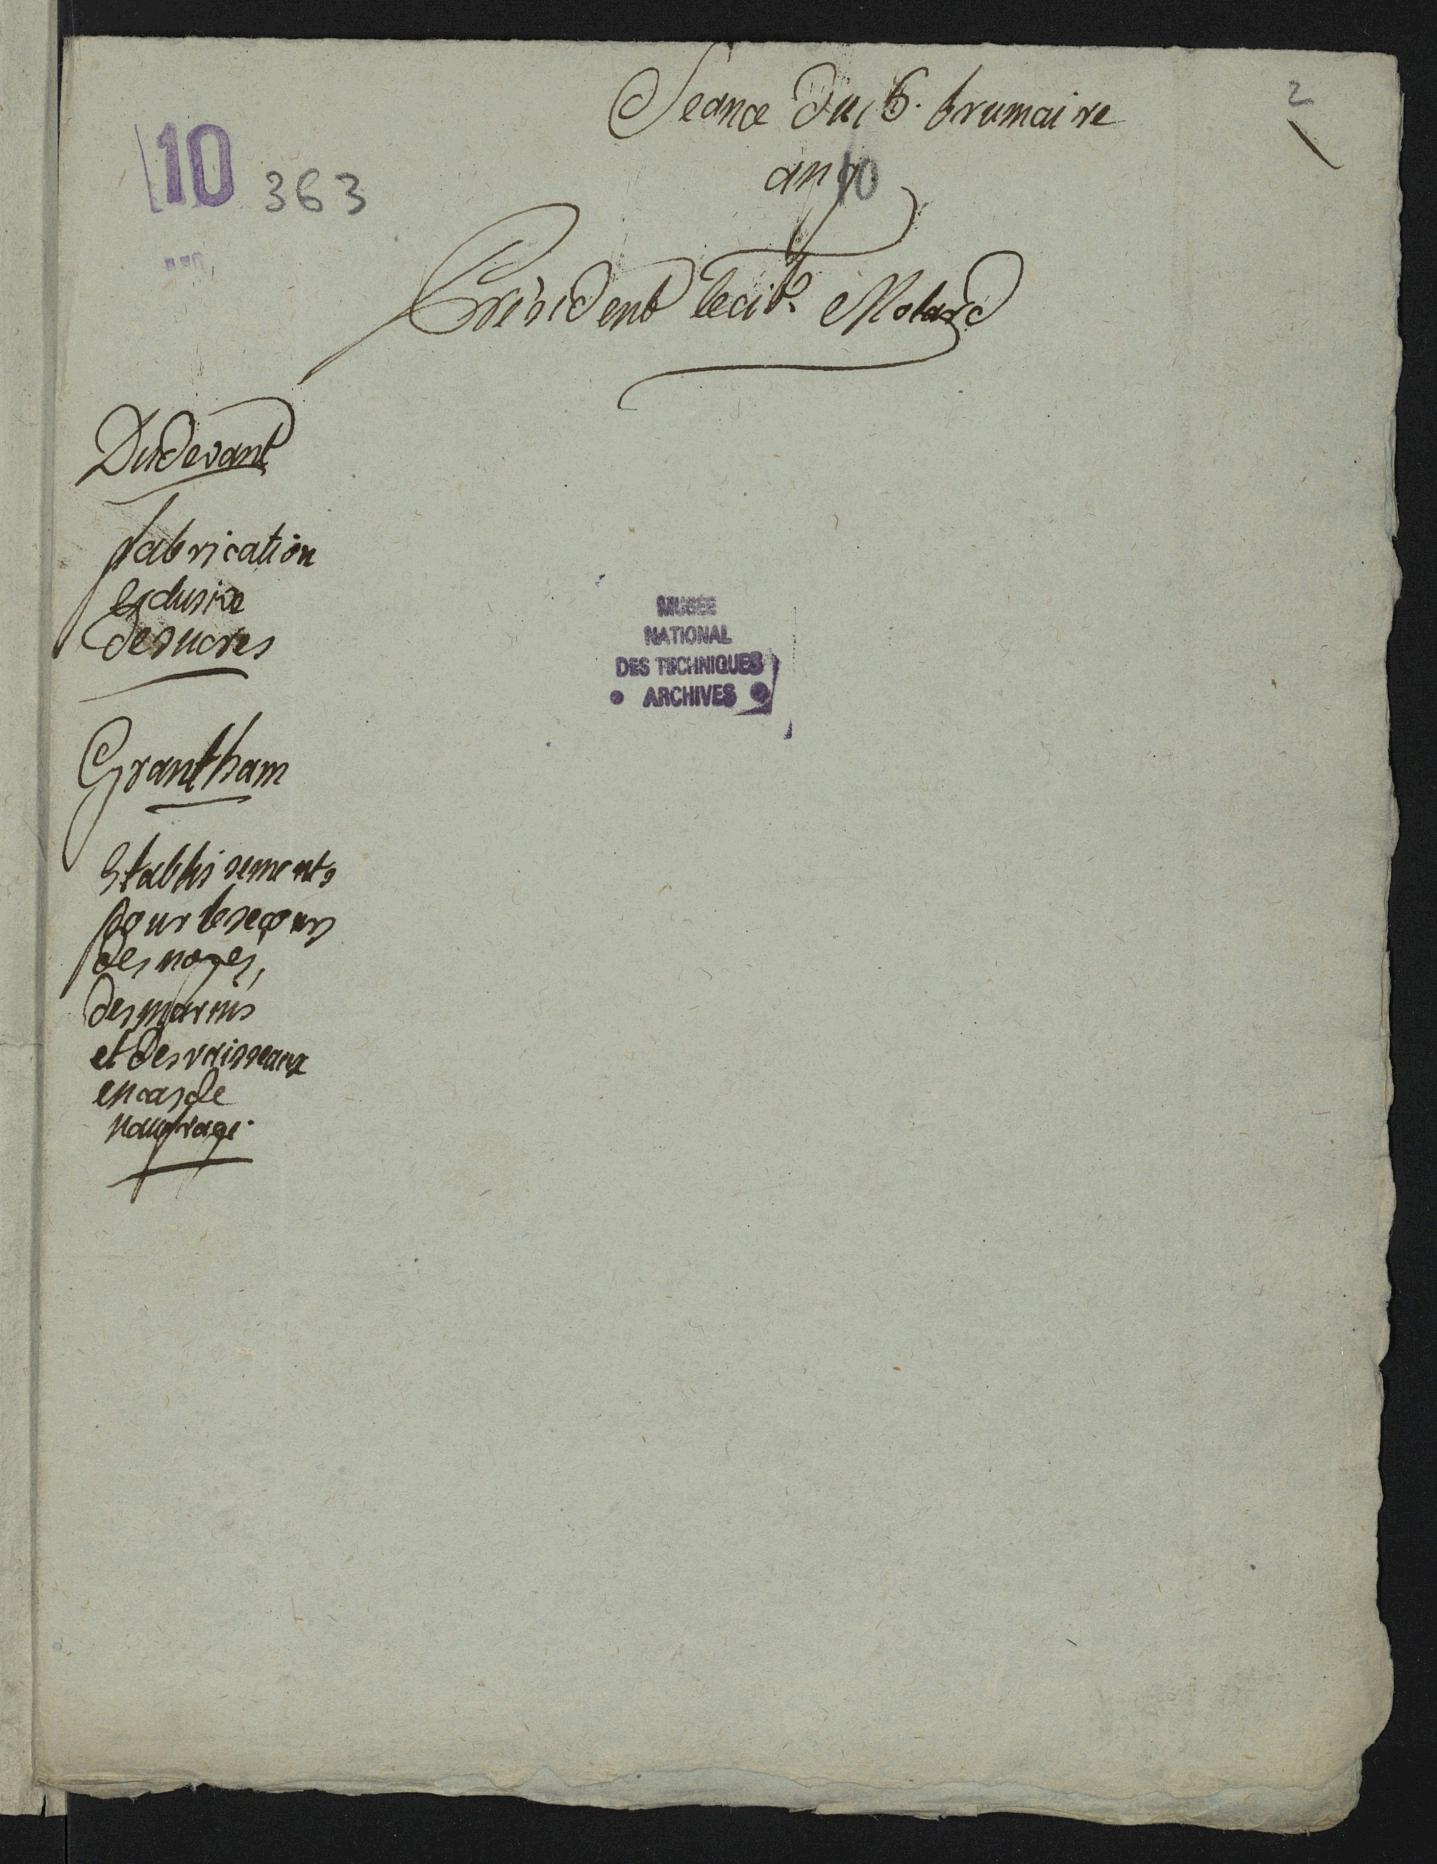 Seance du 6. brumaire
2
an 10
10 363
Président le cit.ⁿ Molard
Dudevant
fabrication
exclusive
de sucres
MUSÉE
NATIONAL
DES TECHNIQUES
• ARCHIVES •
Grantham
Etablissements
pour le secours
des noyés,
des marins
et des vaisseaux
en cas de
naufrage.